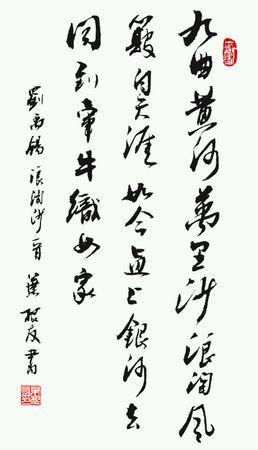 九曲黄河萬里沙浪淘風
簸自天涯如今直上銀河去
同到牽牛織女家
劉禹錫浪淘沙一首友書